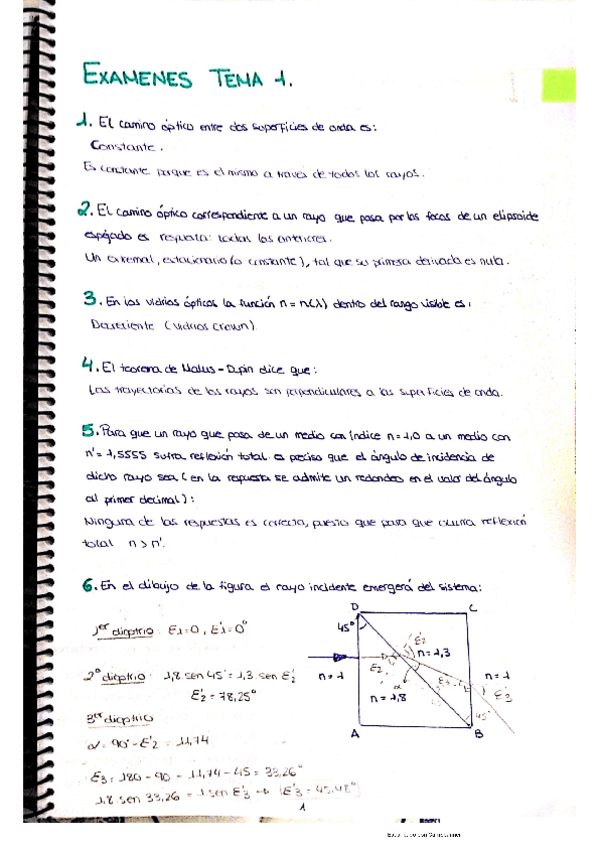 EXAMENES TEMA 1.
1. El camino óptico entre dos superficies de onda es:
Constante.
Es constante porque es el mismo a través de todos los rayos.
2. El camino óptico correspondiente a un rayo que pasa por los focos de un elipsoide
espejado es respuesta: todas las anteriores.
Un extremal, estacionario (o constante), tal que su primera derivada es nula.
3. En los vidrios ópticos la función n = n(λ) dentro del rango visible es:
Decreciente (vidrios crown)
4. El teorema de Malus-Dupin dice que:
Las trayectorias de los rayos son perpendiculares a las superficies de onda.
5. Para que un rayo que pasa de un medio con índice n=1,0 a un medio con
n'=1,5555 sufra reflexión total es preciso que el ángulo de incidencia de
dicho rayo sea (en la respuesta se admite un redondeo en el valor del ángulo
al primer decimal):
Ninguna de las respuestas es correcta, puesto que para que ocurra reflexión
total n > n'.
6. En el dibujo de la figura el rayo incidente emergerá del sistema:
1er dioptrio: ε1=0, ε'1=0°
2º dioptrio: 1,8 sen 45 = 1,3 sen ε'2
ε'2 = 78,25°
3er dioptrio
α = 90 - ε'2 = 11,74
ε3 = 180 - 90 - 11,74 - 45 = 33,26°
1,8 sen 33,26 = 1 sen ε'3 → [ε'3 = 45,48°]
D
C
45°
ε'2
n = 1,3
ε2
n = 1
α
n = 1,8
n = 1
ε'3
45°
A
B
1